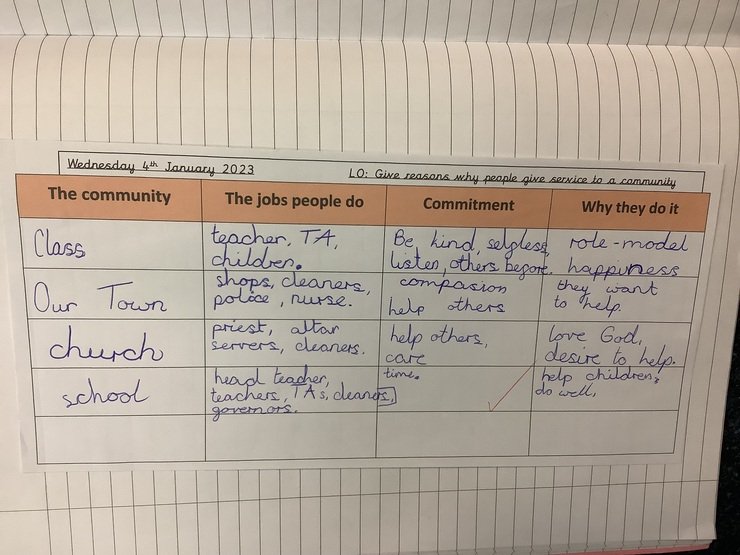 Wednesday 4th January 2023
LO: Give reasons why people give service to a community
The community
The jobs people do
Commitment
Why they do it
Class
teacher, TA,
children.
Be kind, selgless,
listen, others begore.
role-model
happiness
Our Town
shops, cleaners,
police, nurse.
compasion
help others
they want
to help.
church
priest, altar
servers, cleaners.
help others,
care
love God,
desire to help.
school
head teacher,
teachers, TAs, cleaners,
governors.
time.
help children,
do well,